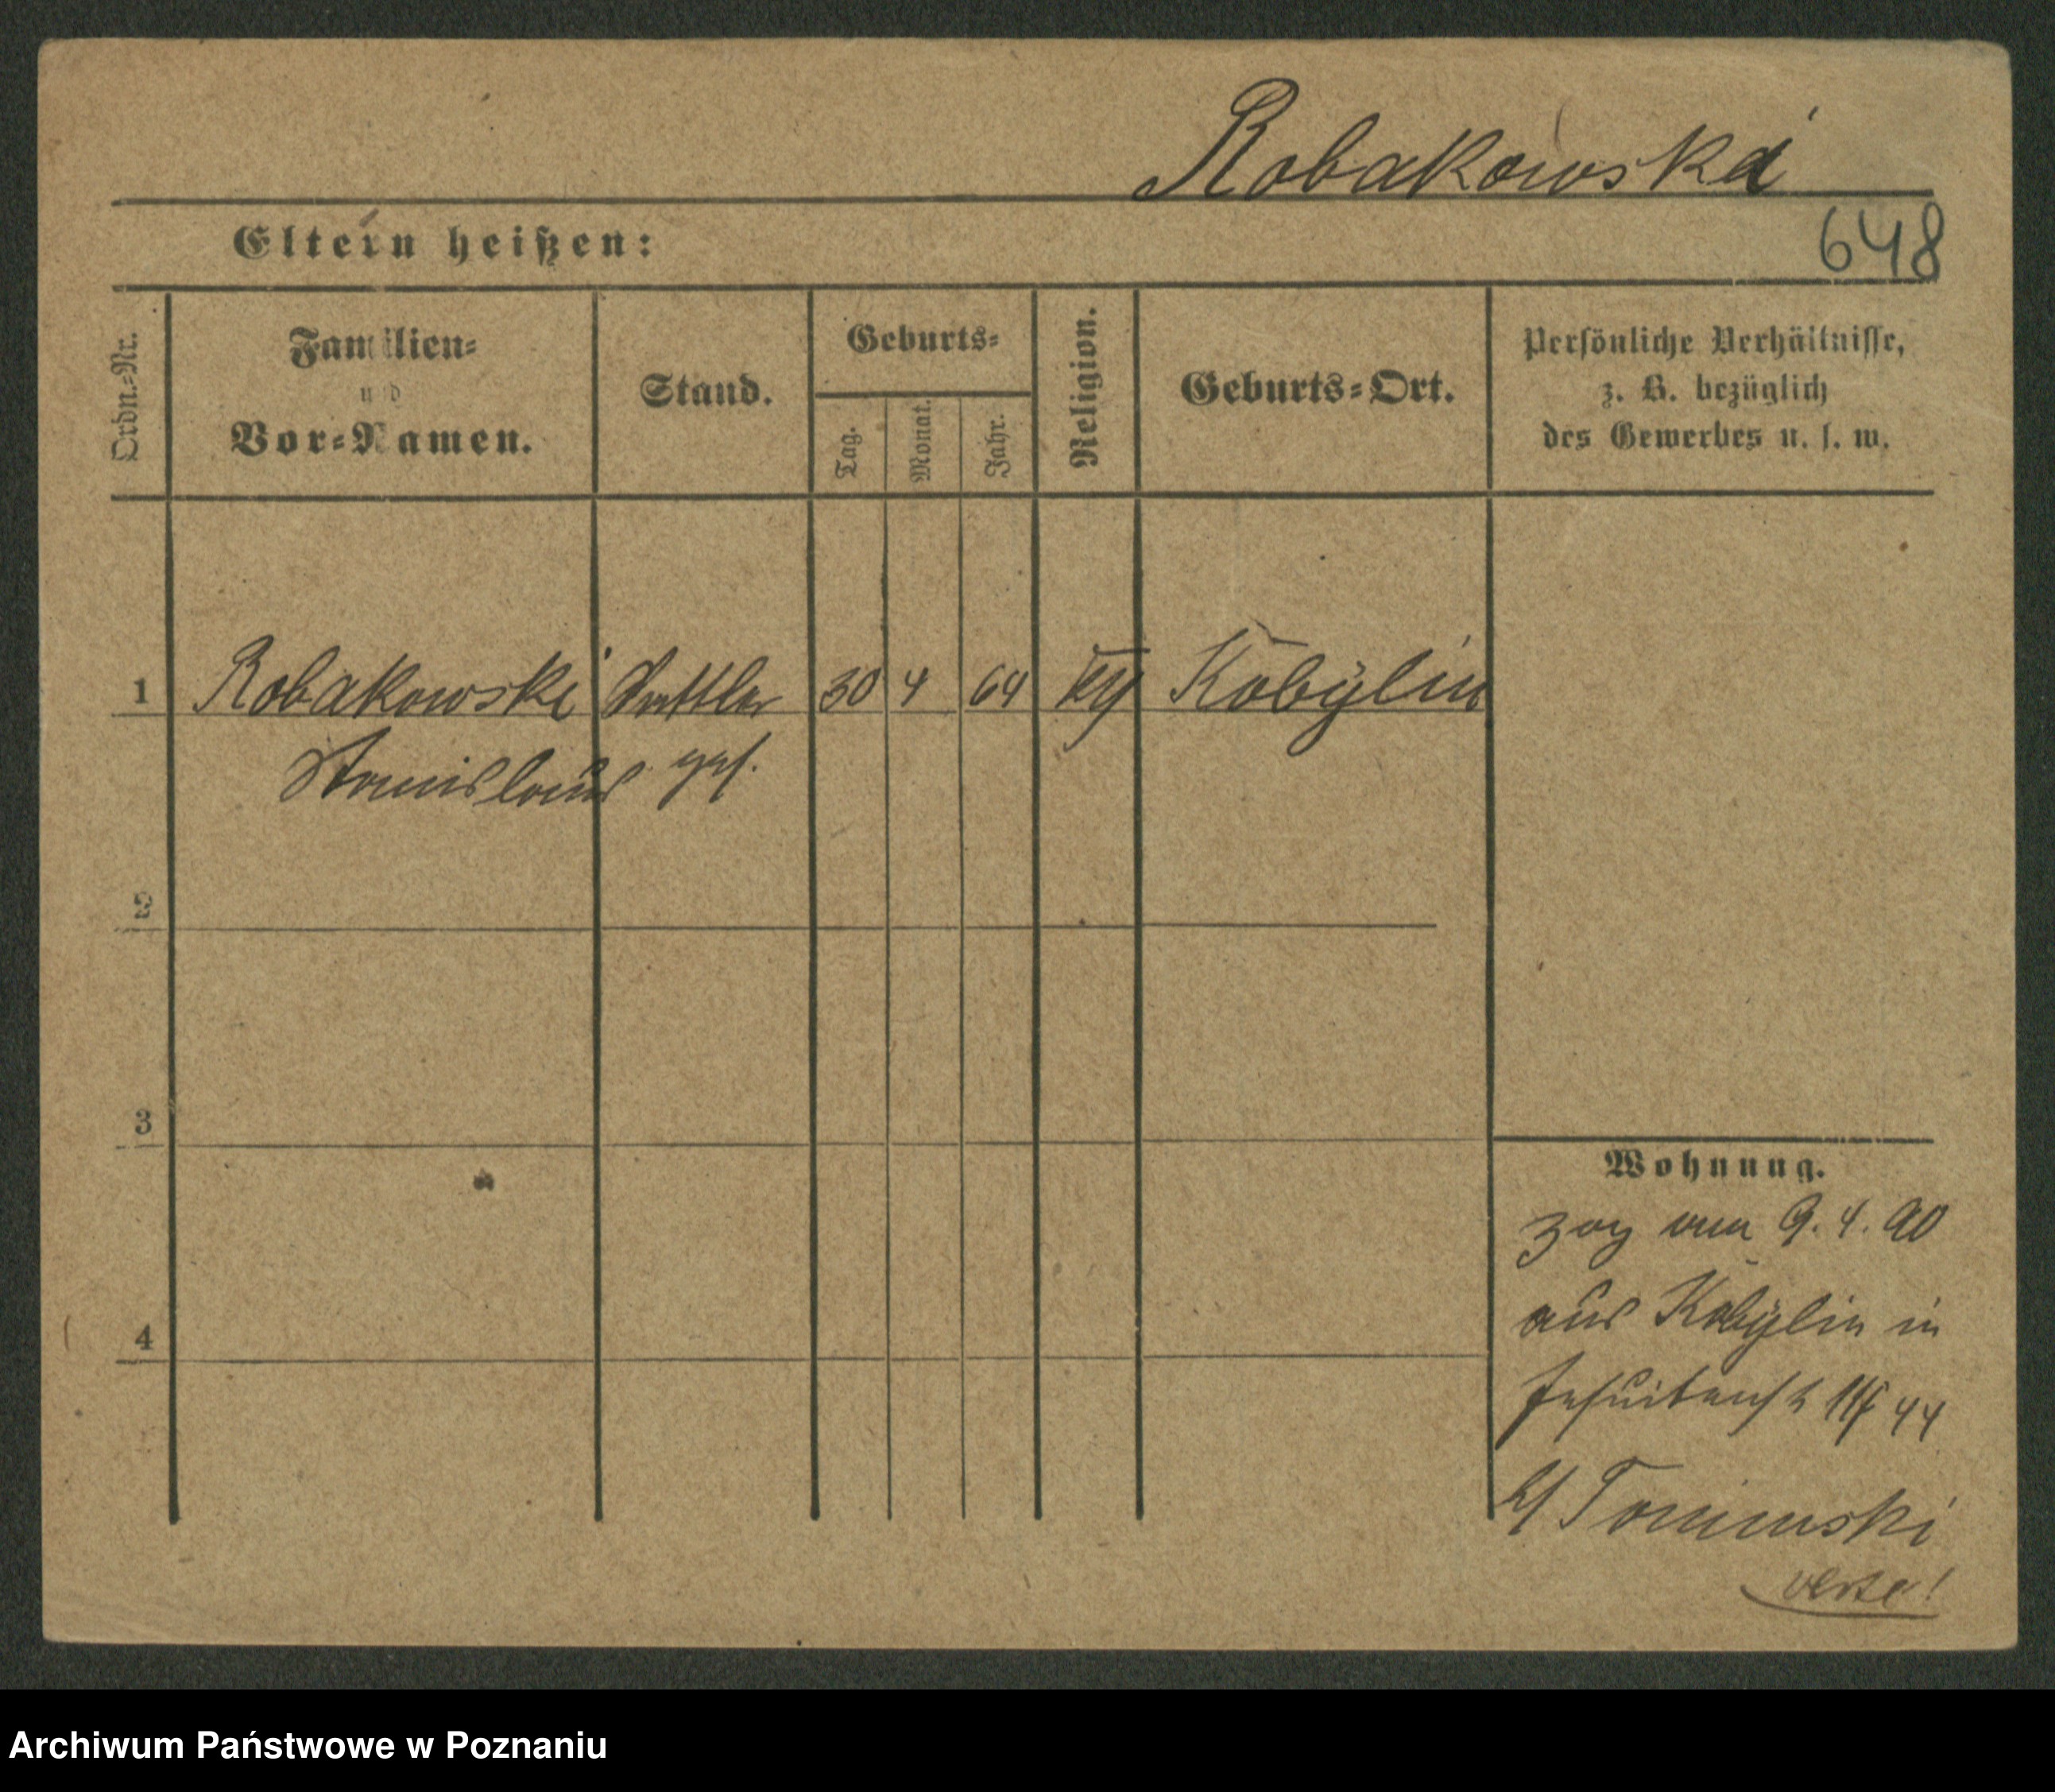 Robakowski
Eltern heißen:
648
Ordn.-Nr.
Familien-
und
Vor-Namen.
Stand.
Geburts-
Tag.
Monat.
Jahr.
Religion.
Geburts-Ort.
Persönliche Verhältnisse,
z. B. bezüglich
des Gewerbes u. s. w.
1 Robakowski Sattler 30 4 64 Kobylin
Stanislaus ges.
2
3
4
Wohnung.
zog am 9. 4. 90
aus Kobylin in
Jesuitenst 44
b/ Tomimski
verte!
Archiwum Państwowe w Poznaniu